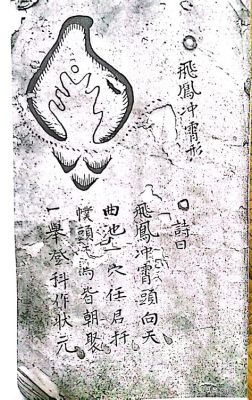 飛鳳冲霄形
詩曰
飛鳳冲霄頭向天
曲池上穴任君扦
幞頭 馬皆朝聚
一舉登科作狀元